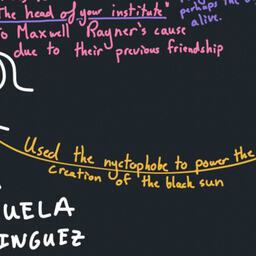 The head of your institute"
perhaps the
alive.
To Maxwell Rayner's cause
due to their previous friendship
Used the nyctophobe to power the
creation of the black sun
UELA
INGUEZ